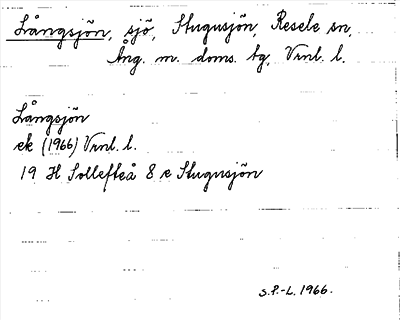 Långsjön, sjö, Stugusjön, Resele sn,
Ång. m. doms. tg, Vrnl. l.
Långsjön
ek (1966) Vrnl. l.
19 H Sollefteå 8 e Stugusjön
S.P.-L. 1966.